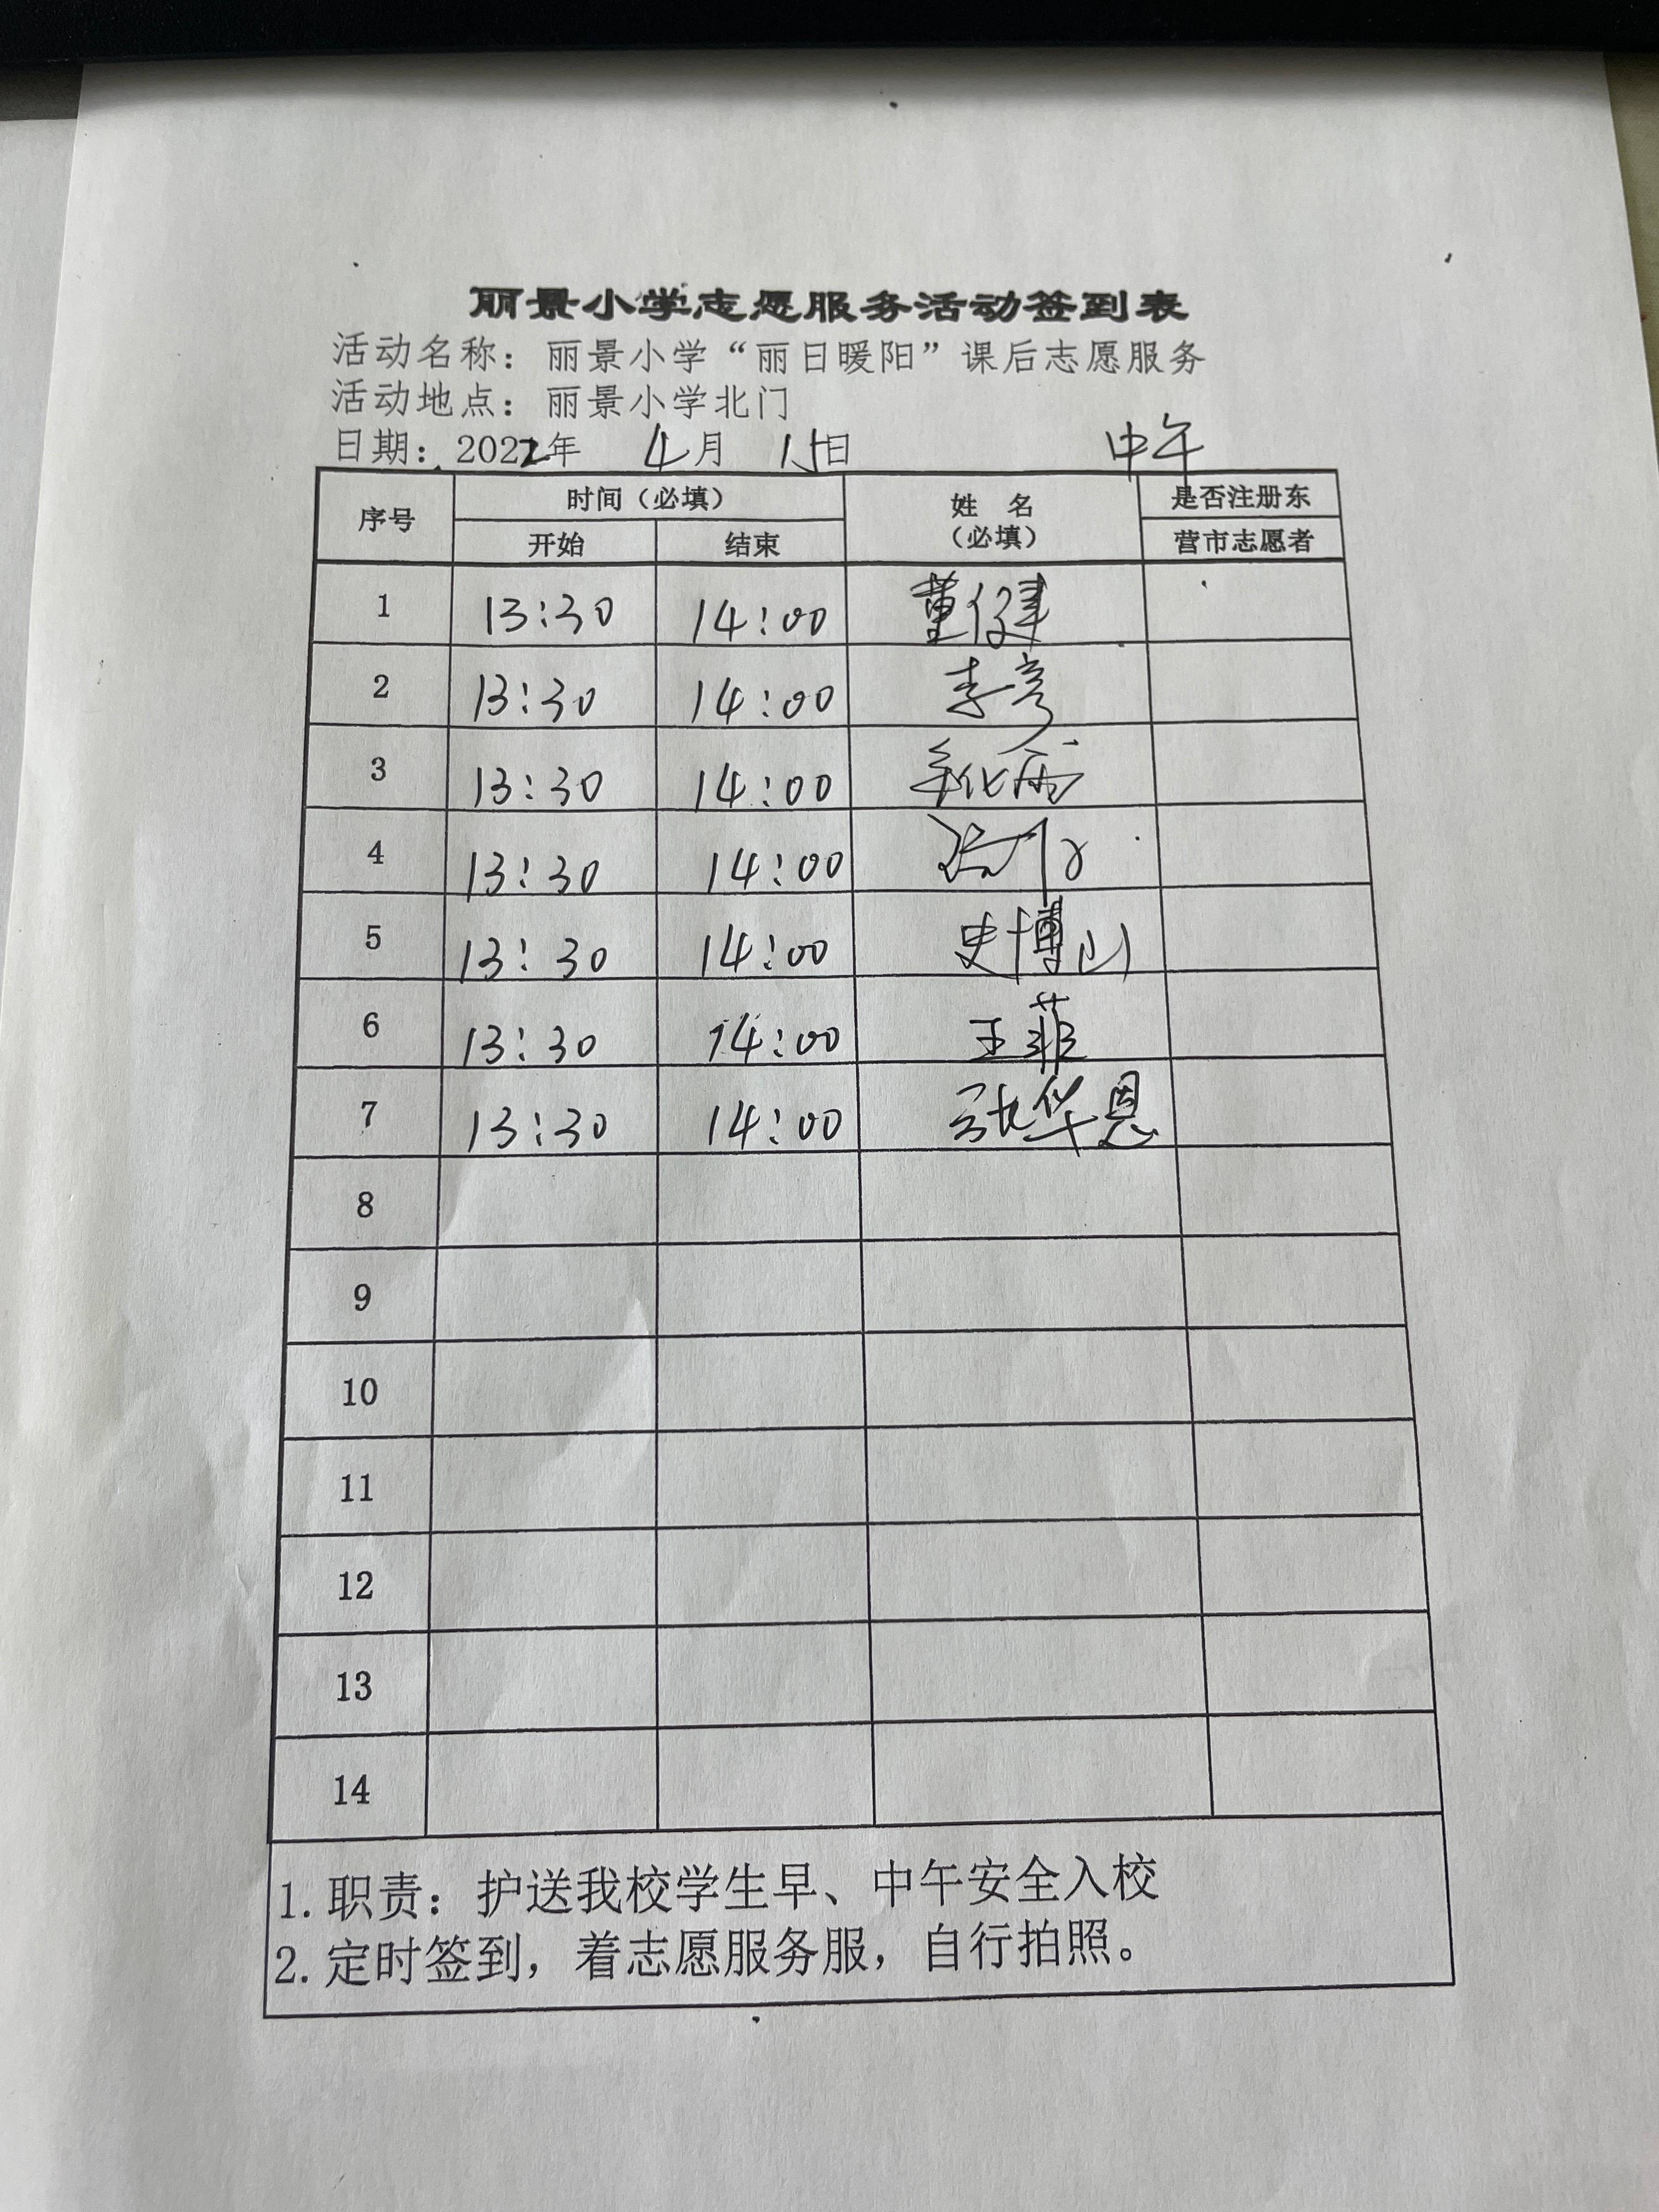 丽景小学志愿服务活动签到表
活动名称：丽景小学“丽日暖阳”课后志愿服务
活动地点：丽景小学北门
日期：2022年 4月 15日 中午
序号 时间（必填） 姓 名（必填） 是否注册东营市志愿者
开始 结束
1 13:30 14:00 董俊
2 13:30 14:00 李彦
3 13:30 14:00
4 13:30 14:00
5 13:30 14:00 史博山
6 13:30 14:00 王菲
7 13:30 14:00 张华恩
8
9
10
11
12
13
14
1.职责：护送我校学生早、中午安全入校
2.定时签到，着志愿服务服，自行拍照。